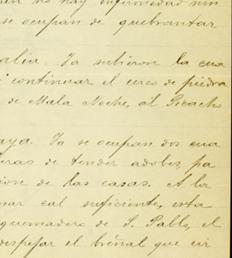 no hay enfermedad nin
se ocupan de quebrantar
alia. Ya subieron la cua
continuar el cerco de piedra
de Mala Noche, al Picacho
aya. Ya se ocupan dos cua
eras de tender adobes, pa
ion de las casas. A la
mar cal suficiente, esta
quemadero de S. Pablo, el
despejar el breñal que cir